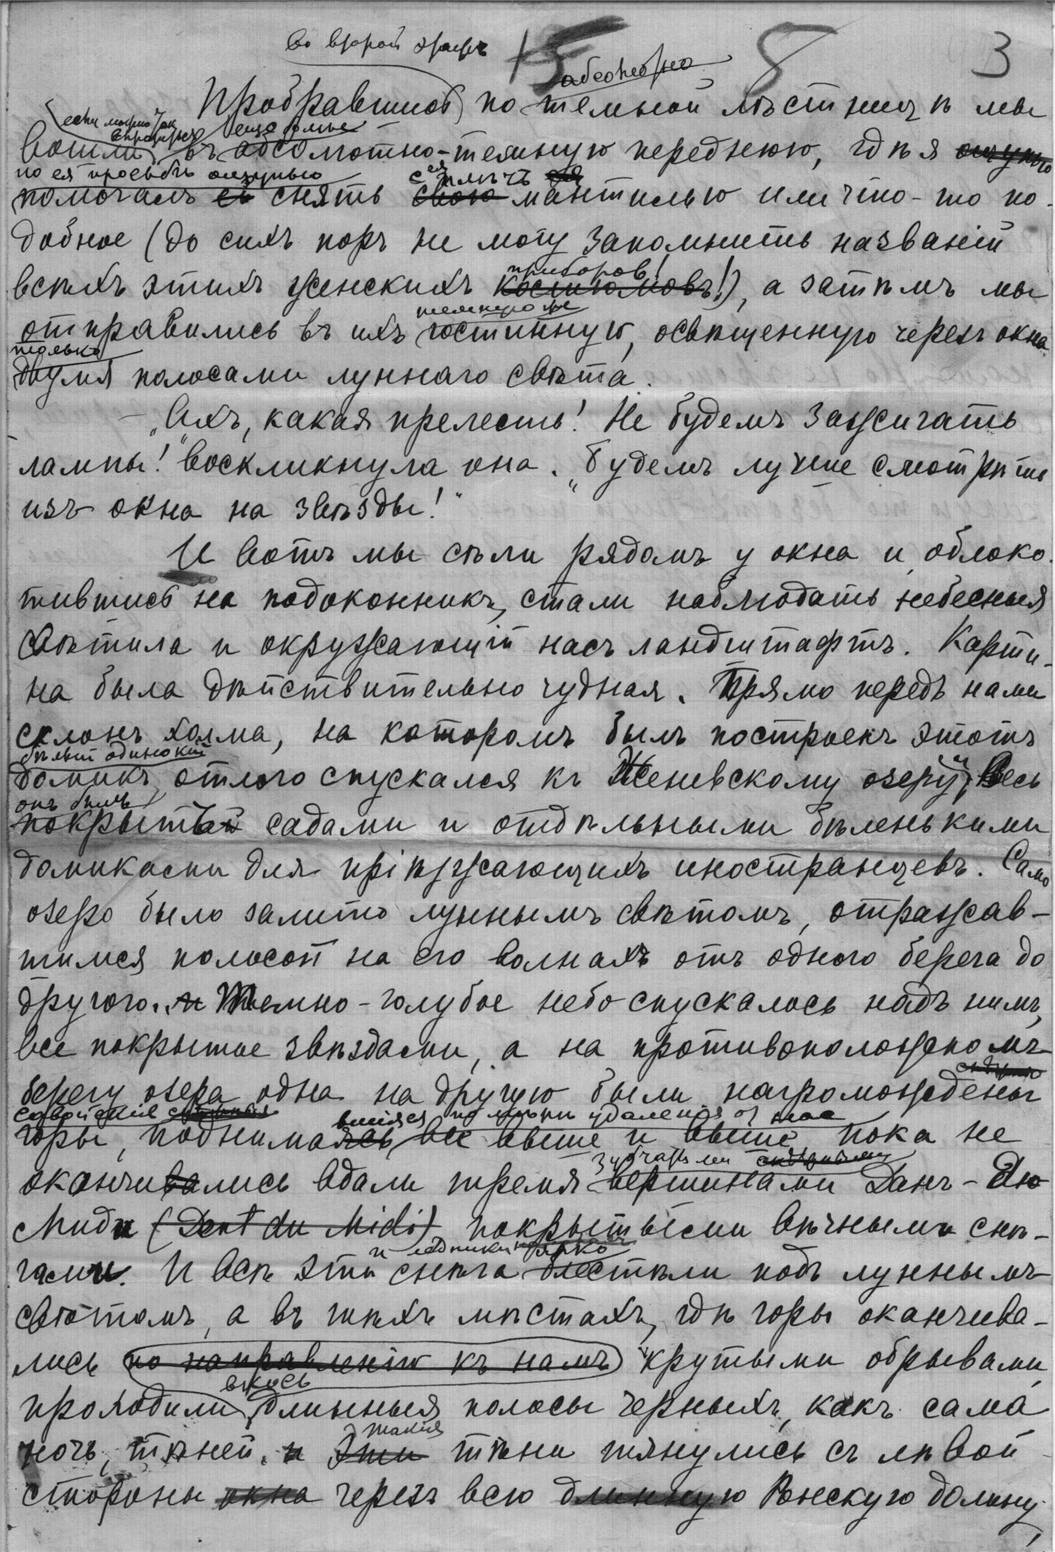 во второй
15 8 3
Пробравшись по темной лѣстницѣ мы
если можно так выразиться еще болѣе
вошли въ абсолютно-темную переднюю, гдѣ я ощупью
по ея просьбѣ ощупью съ ея плечъ
помогалъ ей снять свою мантилью или что-то по-
добное (до сихъ поръ не могу запомнить названій
приборов!
всѣхъ этихъ женскихъ костюмовъ!), а затѣмъ мы
отправились въ ихъ гостинную, освѣщенную черезъ окна
только
двумя полосами луннаго свѣта.
– „Ахъ, какая прелесть! Не будемъ зажигать
лампы! воскликнула она. „Будемъ лучше смотрѣть
изъ окна на звѣзды!"
И вотъ мы сѣли рядомъ у окна и, облоко-
тившись на подоконникъ, стали наблюдать небесныя
свѣтила и окружающій насъ ландштафтъ. Карти-
на была дѣйствительно чудная. Прямо передъ нами
склонъ холма, на которомъ былъ построенъ этотъ
бѣлый одинокій
домикъ, отлого спускался къ Женевскому озеру и весь
онъ былъ
покрытъ садами и отдѣльными бѣленькими
домиками для пріѣзжающихъ иностранцевъ. Само
озеро было залито луннымъ свѣтомъ, отражав-
шимся полосой на его волнахъ отъ одного берега до
другого. и Темно-голубое небо спускалось надъ нимъ,
все покрытое звѣздами, а на противоположномъ
берегу озера одна на другую были нагромождены
вшіяся по мѣрѣ удаленія от нас
горы, поднимаясь все выше и выше, пока не
зубчатыми
оканчивались вдали тремя вершинами Данъ-Дю
Миди (Dent du Midi), покрытыми вѣчными снѣ-
и ледники ярко
гами. И всѣ эти снѣга блестѣли подъ луннымъ
свѣтомъ, а въ тѣхъ мѣстахъ, гдѣ горы оканчива-
лись по направленію къ намъ крутыми обрывами,
вкось
проходили длинныя полосы черныхъ, какъ сама
такія
ночь, тѣней. и Эти тѣни тянулись съ лѣвой
стороны окна черезъ всю длинную Ронскую долину,